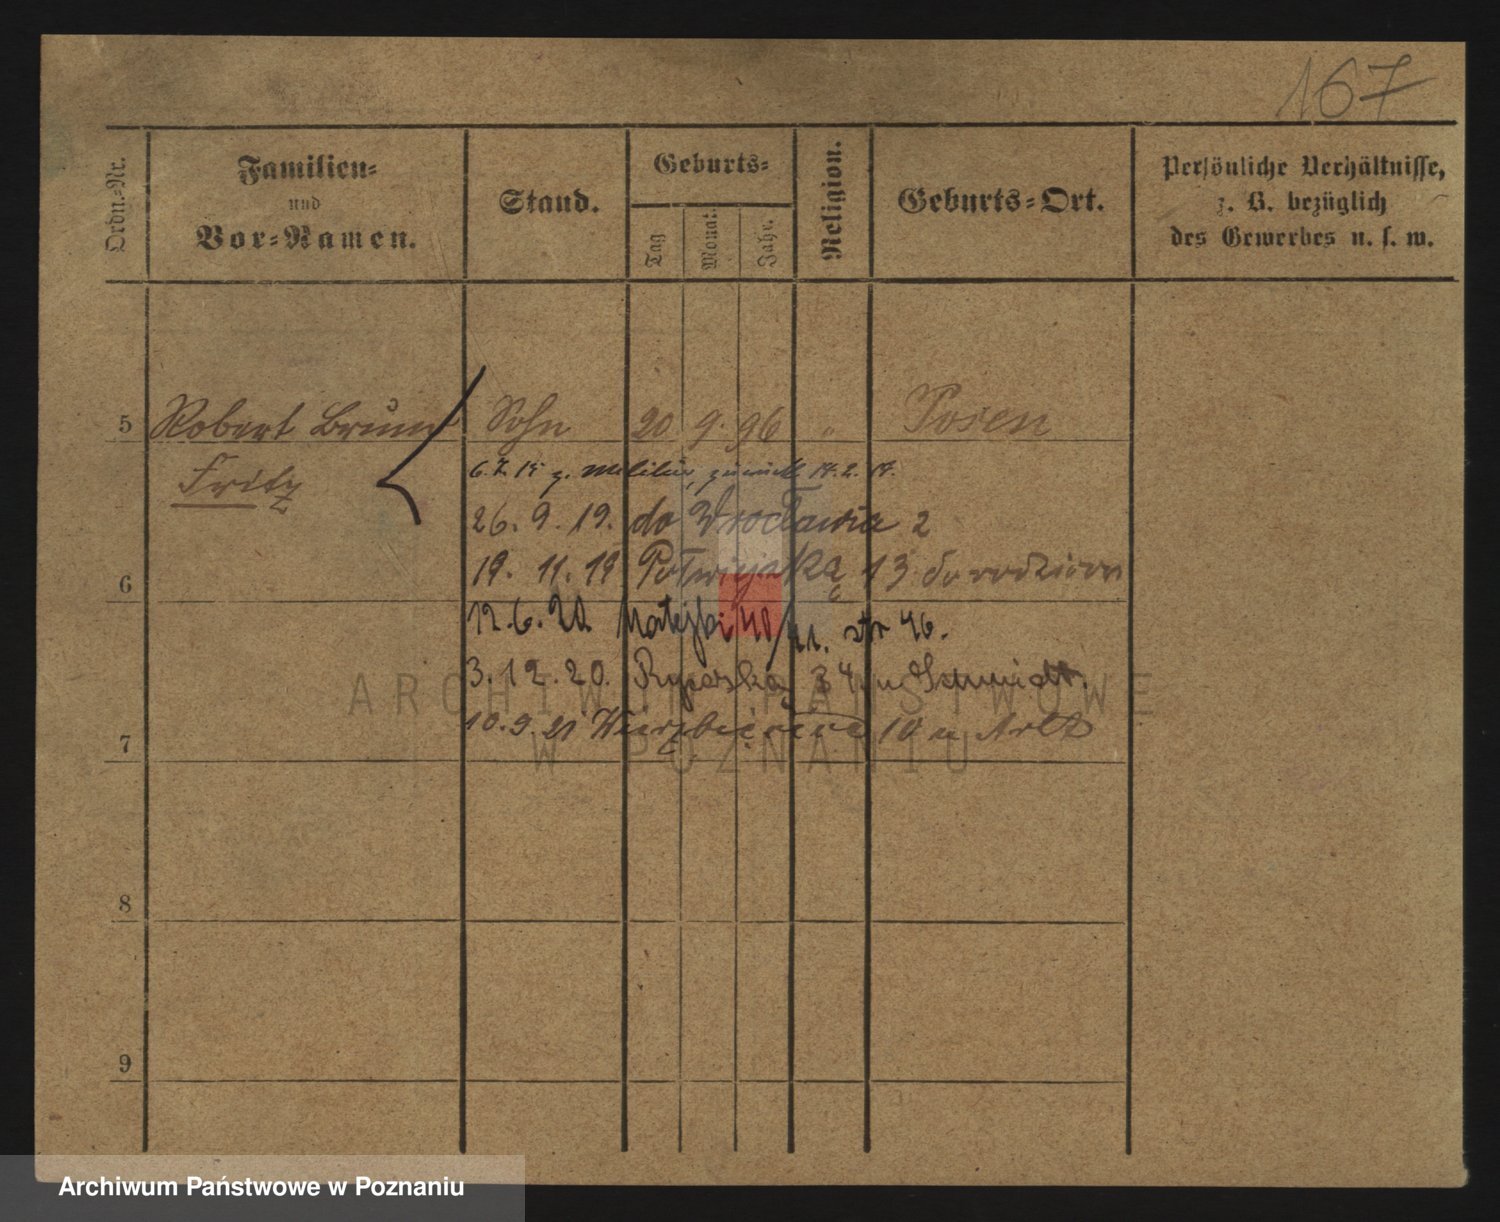 167
Ordn.-Nr.
Familien-
und
Vor-Namen.
Stand.
Geburts-
Tag
Monat.
Jahr.
Religion.
Geburts-Ort.
Persönliche Verhältnisse,
z. B. bezüglich
des Gewerbes u. s. w.
5 Robert Bruno Sohn 20 9. 96 " Posen
Fritz
6.7.15 z. Militär, zurück 17.2.17.
26. 9. 19. do Wrocławia 2
19. 11. 19 13 do rodziców
6
12.6.20 Matejki 48/ str 46.
3.12.20. Rycerska 34 u Schmidt.
10.9.21 Wierzbięcice 10 u Arlt
7
8
9
ARCHIWUM PAŃSTWOWE
W POZNANIU
Archiwum Państwowe w Poznaniu